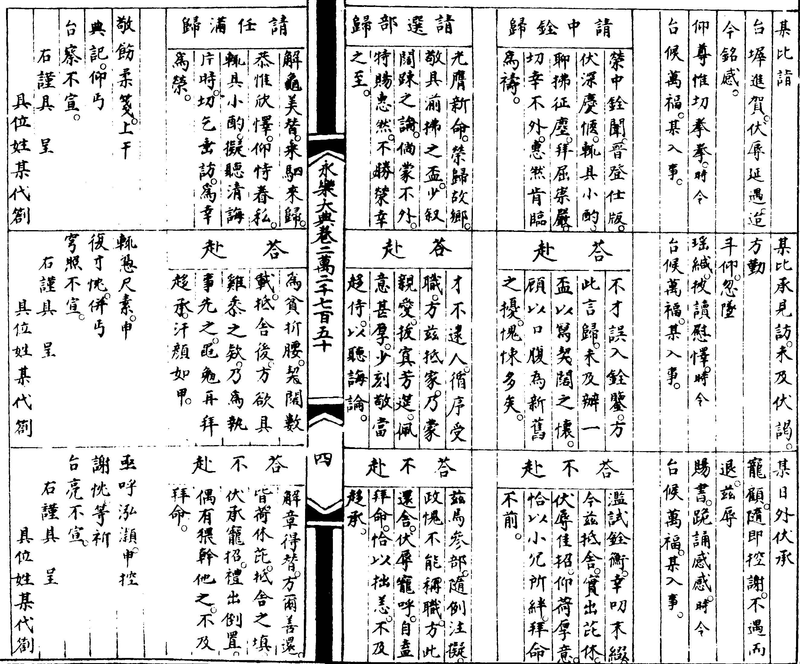 某比詣
台墀進賀。伏辱延遇迨
今銘感。
仰尊惟切拳拳。時今
台候萬福。某入事。
請中銓歸
榮中銓闈。晉登仕版。
伏深慶愜。輒具小酌。
聊拂征塵。拜屈崇嚴。
切幸不外。惠然肯臨
為禱。
請選部歸
光膺新命。榮歸故鄉。
敬具前拂之盃。少叙
闊踈之論。倘蒙不外。
特賜惠然。不勝榮幸
之至。
永樂大典卷二萬二千七百五十
四
請任滿歸
解龜美替。乘駟來歸。
恭惟欣懌。仰恃眷私。
輒具小酌。擬聽清誨
片時。切乞垂訪。為幸
為榮。
敬飭柔箋。上干
典記。仰丐
台察不宣。
右謹具 呈
具位姓某代劄
某比承見訪。未及伏謁。
方勤
斗仰。忽墜
瑶緘。披讀慰懌。時今
台候萬福。某入事。
答赴
不才誤入銓鑒。方
此言歸。未及辦一
盃以寫契闊之懷。
顧以口腹為新舊
之擾。愧悚多矣。
答赴
才不逮人。循序受
職。方茲抵家。乃蒙
親愛。拔寘芳筵。佩
意甚厚。少刻敬當
趍侍。以聽誨論。
答赴
為貧折腰。契闊數
載。抵舍後。方欲具
雞黍之欵。乃為執
事先之。黽勉再拜
趍承。汗顏如甲。
輒憑尺素。申
復寸忱。併丐
穹照不宣。
右謹具 呈
具位姓某代劄
某日外伏承
寵顧。隨即控謝。不遇而
退。茲辱
賜書。跪誦感感。時今
台候萬福。某入事。
答不赴
濫試銓衡。幸叨末綴
今茲抵舍。實出芘休。
伏辱佳招。仰荷厚意。
恰以小兒所絆。拜命
不前。
答不赴
茲焉參部。隨例注擬。
政愧不能稱職。方此
還舍。伏辱寵呼。自盍
拜命。恰以拙恙。不及
趍承。
答不赴
解章得替。方爾善還。
皆荷休芘。抵舍之填
伏承寵招。禮出倒置。
偶有猥幹他之。不及
拜命。
亟呼泓潁。申控
謝忱。等祈
台亮不宣。
右謹具 呈
具位姓某代劄